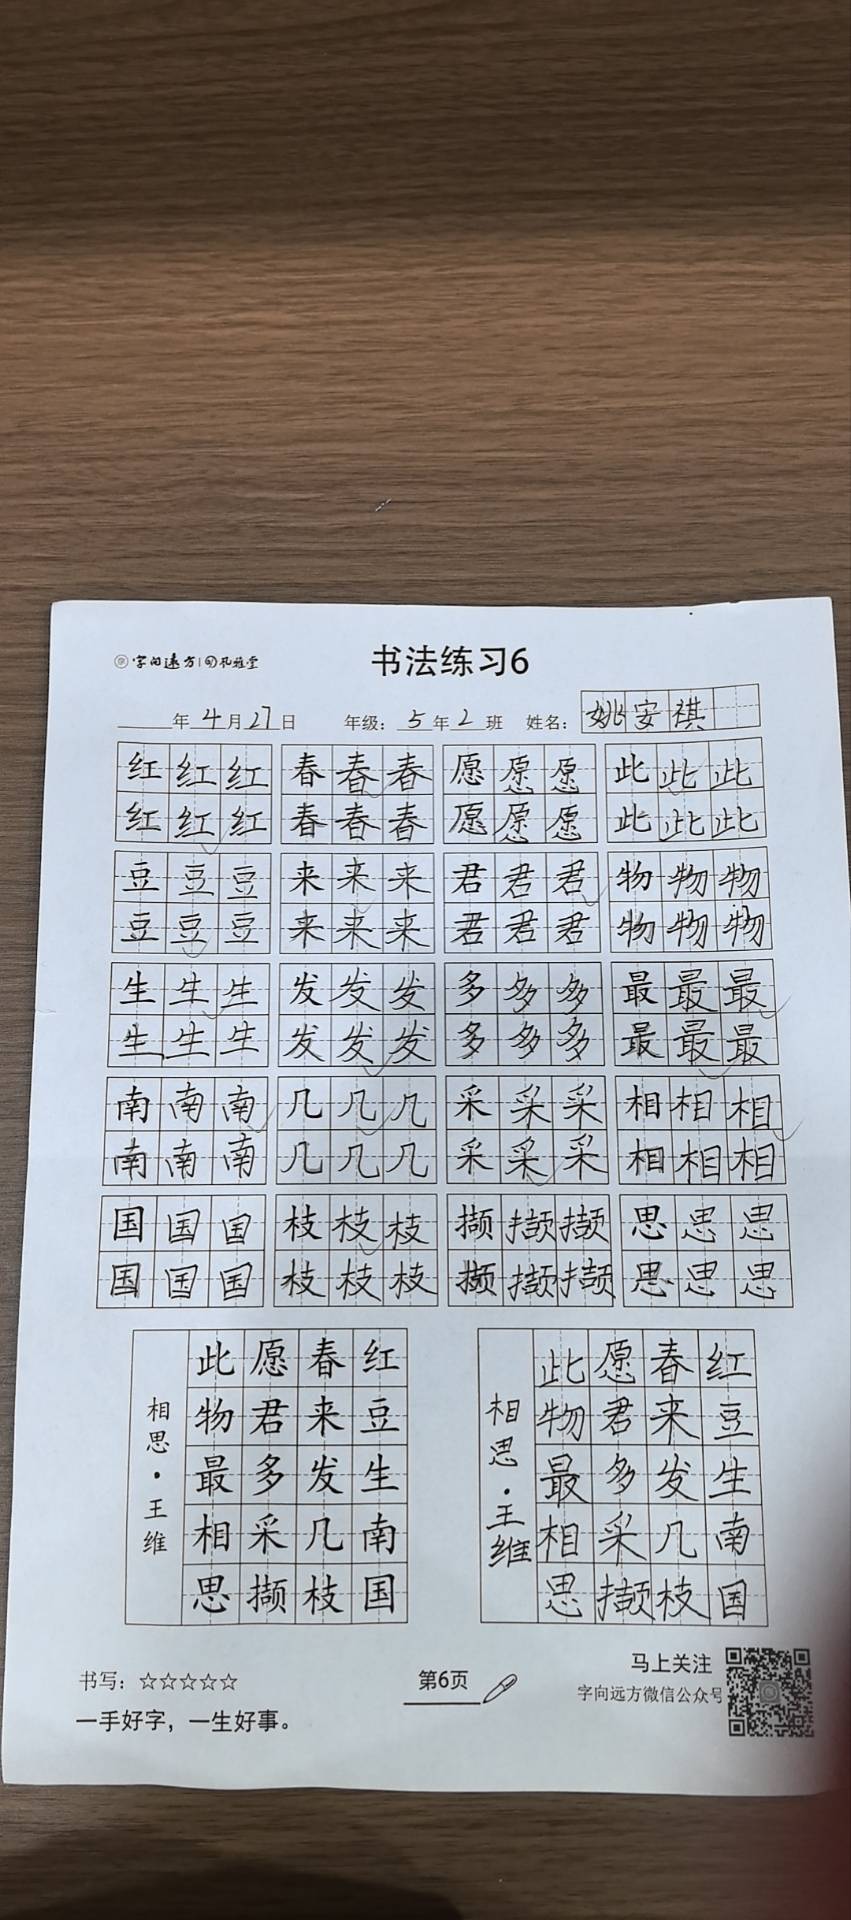 字向远方 孔雅堂
书法练习6
年4月27日 年级：5年2班 姓名：姚安祺
红红红 春春春 愿愿愿 此此此
红红红 春春春 愿愿愿 此此此
豆豆豆 来来来 君君君 物物物
豆豆豆 来来来 君君君 物物物
生生生 发发发 多多多 最最最
生生生 发发发 多多多 最最最
南南南 几几几 采采采 相相相
南南南 几几几 采采采 相相相
国国国 枝枝枝 撷撷撷 思思思
国国国 枝枝枝 撷撷撷 思思思
红豆生南国
春来发几枝
愿君多采撷
此物最相思
相思·王维
红豆生南国
春来发几枝
愿君多采撷
此物最相思
相思·王维
书写：☆☆☆☆☆
一手好字，一生好事。
第6页
马上关注
字向远方微信公众号